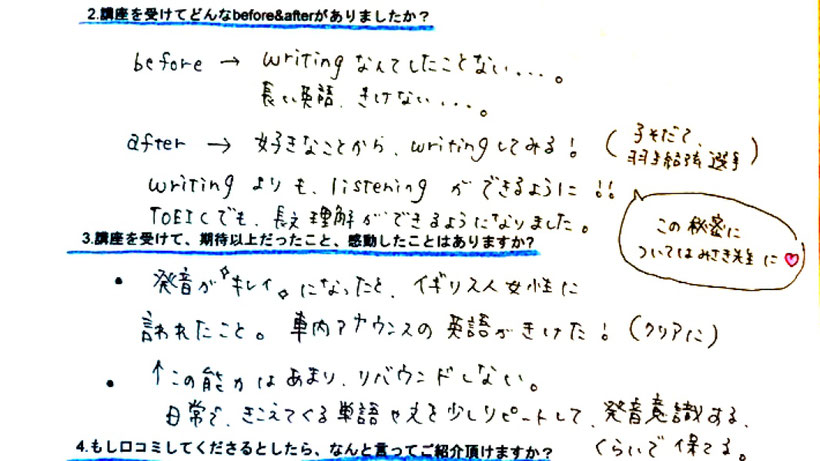 2.講座を受けてどんなbefore&afterがありましたか？
before → writingなんてしたことない...。
長い英語、きけない...。
after → 好きなことから、writingしてみる！
(子そだて、
羽生結弦選手)
writingよりも、listeningができるように!!
TOEICでも、長文理解ができるようになりました。
この秘密に
ついてはみさき先生に♡
3.講座を受けて、期待以上だったこと、感動したことはありますか？
・発音が“キレイ”になったと、イギリス人女性に
言われたこと。車内アナウンスの英語がきけた！(クリアに)
・↑この能力はあまり、リバウンドしない。
日常で、きこえてくる単語や文を少しリピートして、発音意識する、
くらいで保てる。
4.もし口コミしてくださるとしたら、なんと言ってご紹介頂けますか？